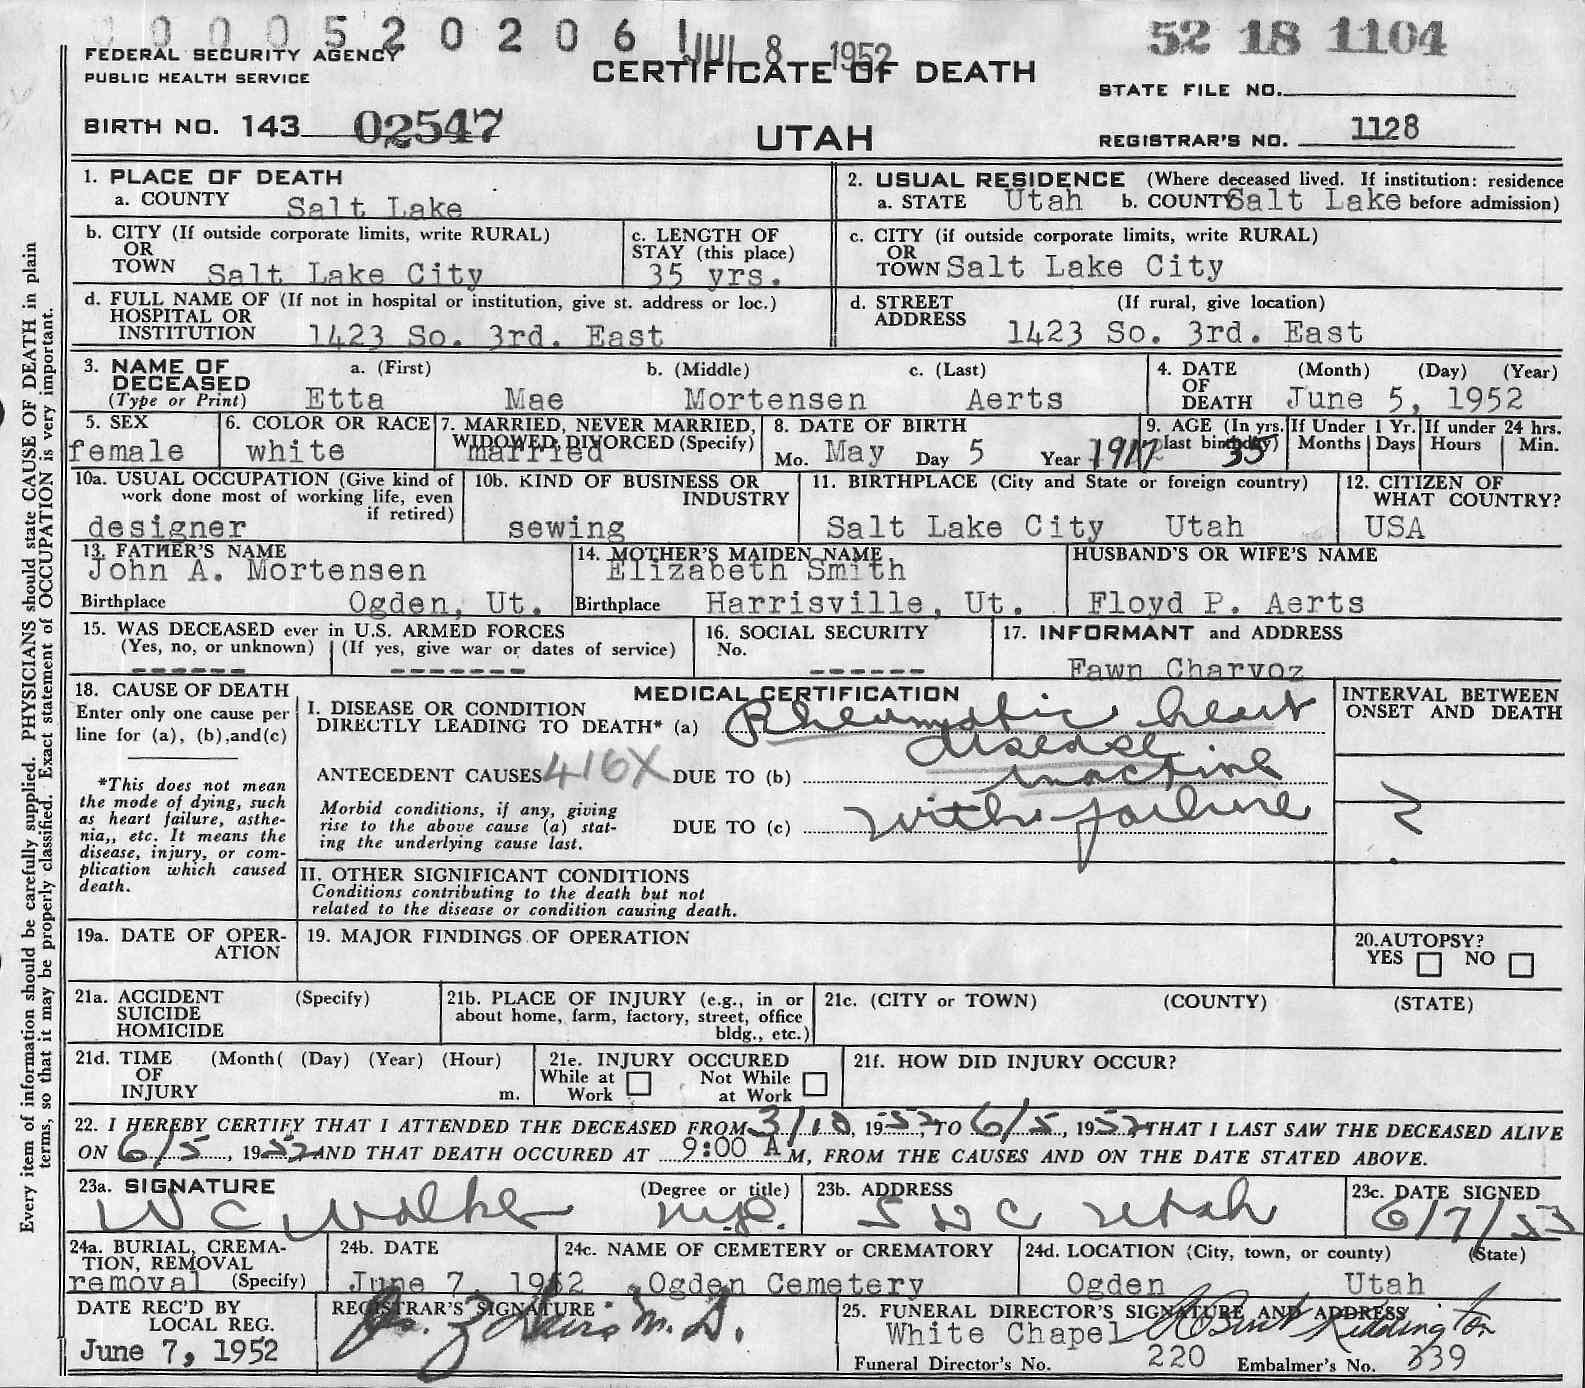 0005 20206 JUL 8 1952
52 18 1104
FEDERAL SECURITY AGENCY
PUBLIC HEALTH SERVICE
CERTIFICATE OF DEATH
STATE FILE NO.
BIRTH NO. 143 02547
UTAH
REGISTRAR'S NO. 1128
Every item of information should be carefully supplied. PHYSICIANS should state CAUSE OF DEATH in plain
terms, so that it may be properly classified. Exact statement of OCCUPATION is very important.
1. PLACE OF DEATH
a. COUNTY Salt Lake
2. USUAL RESIDENCE (Where deceased lived. If institution: residence
a. STATE Utah b. COUNTY Salt Lake before admission)
b. CITY (If outside corporate limits, write RURAL)
OR
TOWN Salt Lake City
c. LENGTH OF
STAY (this place)
35 yrs.
c. CITY (if outside corporate limits, write RURAL)
OR
TOWN Salt Lake City
d. FULL NAME OF (If not in hospital or institution, give st. address or loc.)
HOSPITAL OR
INSTITUTION 1423 So. 3rd. East
d. STREET (If rural, give location)
ADDRESS
1423 So. 3rd. East
3. NAME OF a. (First) b. (Middle) c. (Last)
DECEASED
(Type or Print) Etta Mae Mortensen Aerts
4. DATE (Month) (Day) (Year)
OF
DEATH June 5, 1952
5. SEX
female
6. COLOR OR RACE
white
7. MARRIED, NEVER MARRIED,
WIDOWED, DIVORCED (Specify)
married
8. DATE OF BIRTH
Mo. May Day 5 Year 1917
9. AGE (In yrs.
last birthday) 35
If Under 1 Yr.
Months Days
If under 24 hrs.
Hours Min.
10a. USUAL OCCUPATION (Give kind of
work done most of working life, even
if retired)
designer
10b. KIND OF BUSINESS OR
INDUSTRY
sewing
11. BIRTHPLACE (City and State or foreign country)
Salt Lake City Utah
12. CITIZEN OF
WHAT COUNTRY?
USA
13. FATHER'S NAME
John A. Mortensen
Birthplace Ogden, Ut.
14. MOTHER'S MAIDEN NAME
Elizabeth Smith
Birthplace Harrisville, Ut.
HUSBAND'S OR WIFE'S NAME
Floyd P. Aerts
15. WAS DECEASED ever in U.S. ARMED FORCES
(Yes, no, or unknown) (If yes, give war or dates of service)
------ -------
16. SOCIAL SECURITY
No.
------
17. INFORMANT and ADDRESS
Fawn Charvoz
18. CAUSE OF DEATH
Enter only one cause per
line for (a), (b),and(c)
*This does not mean
the mode of dying, such
as heart failure, asthe-
nia,, etc. It means the
disease, injury, or com-
plication which caused
death.
MEDICAL CERTIFICATION
I. DISEASE OR CONDITION
DIRECTLY LEADING TO DEATH* (a) Rheumatic heart
disease
ANTECEDENT CAUSES 416X DUE TO (b) inactive
Morbid conditions, if any, giving
rise to the above cause (a) stat-
ing the underlying cause last.
DUE TO (c) with failure
INTERVAL BETWEEN
ONSET AND DEATH
?
II. OTHER SIGNIFICANT CONDITIONS
Conditions contributing to the death but not
related to the disease or condition causing death.
19a. DATE OF OPER-
ATION
19. MAJOR FINDINGS OF OPERATION
20.AUTOPSY?
YES NO
21a. ACCIDENT (Specify)
SUICIDE
HOMICIDE
21b. PLACE OF INJURY (e.g., in or
about home, farm, factory, street, office
bldg., etc.)
21c. (CITY or TOWN) (COUNTY) (STATE)
21d. TIME (Month( (Day) (Year) (Hour)
OF
INJURY m.
21e. INJURY OCCURED
While at Not While
Work at Work
21f. HOW DID INJURY OCCUR?
22. I HEREBY CERTIFY THAT I ATTENDED THE DECEASED FROM 3/10, 1952, TO 6/5, 1952, THAT I LAST SAW THE DECEASED ALIVE
ON 6/5, 1952 AND THAT DEATH OCCURED AT 9:00 A M, FROM THE CAUSES AND ON THE DATE STATED ABOVE.
23a. SIGNATURE (Degree or title)
W C Walker M.D.
23b. ADDRESS
S L C Utah
23c. DATE SIGNED
6/7/53
24a. BURIAL, CREMA-
TION, REMOVAL
removal (Specify)
24b. DATE
June 7, 1952
24c. NAME OF CEMETERY or CREMATORY
Ogden Cemetery
24d. LOCATION (City, town, or county) (State)
Ogden Utah
DATE REC'D BY
LOCAL REG.
June 7, 1952
REGISTRAR'S SIGNATURE
M.D.
25. FUNERAL DIRECTOR'S SIGNATURE AND ADDRESS
White Chapel
Funeral Director's No. 220 Embalmer's No. 339